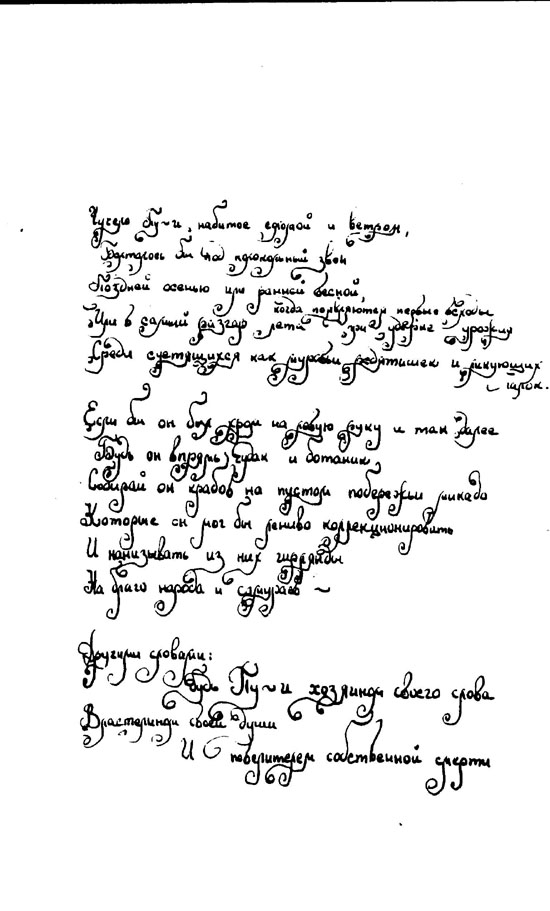 Чучело Пу~И, набитое едой и ветром,
Болталось бы над
Поздней осенью или ранней весной,
когда появляются первые всходы
Или в самый разгар лета урожая
Среди суетящихся как муравьи ребятишек и ликующих
Если бы он был хром на левую руку и так далее
Будь он впрямь чудак и ботаник,
Собирай он крабов на пустом побережьи микадо
Которые он мог бы лениво коллекционировать
И нанизывать из них гирлянды
На благо народа и самураев ~
Другими словами:
Будь Пу~И хозяином своего слова
Властелином своей души
И повелителем собственной смерти